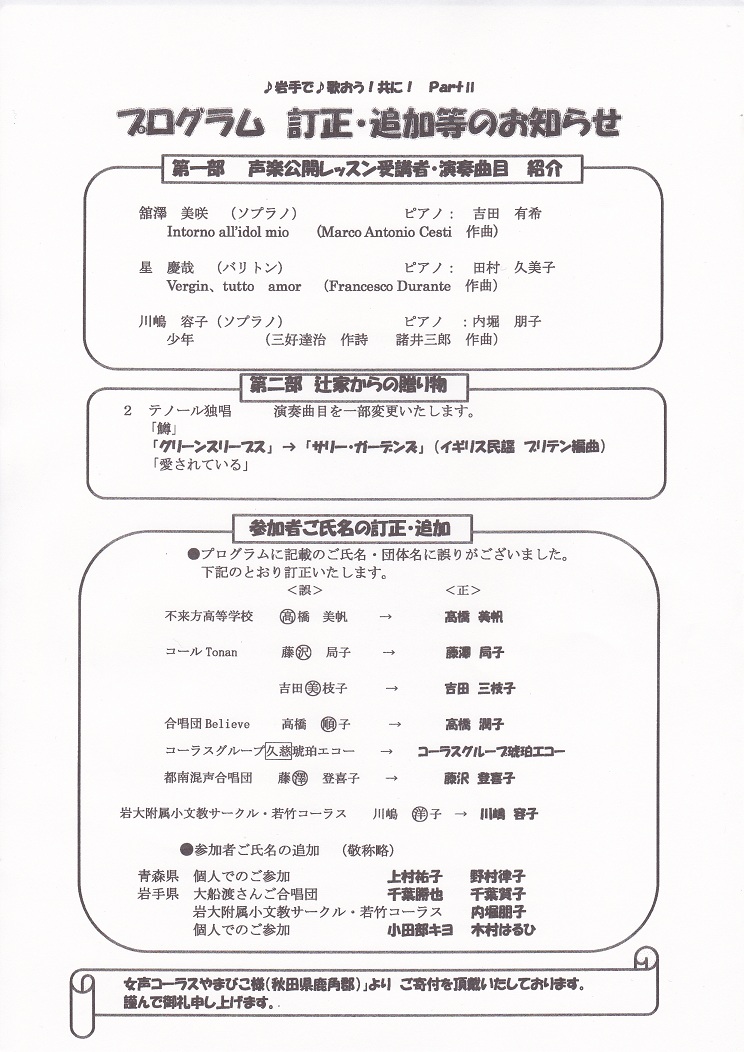 ♪岩手で♪歌おう！共に！ PartⅡ
プログラム 訂正・追加等のお知らせ
第一部 声楽公開レッスン受講者・演奏曲目 紹介
舘澤 美咲 （ソプラノ） ピアノ： 吉田 有希
Intorno all'idol mio （Marco Antonio Cesti 作曲）
星 慶哉 （バリトン） ピアノ： 田村 久美子
Vergin、tutto amor （Francesco Durante 作曲）
川嶋 容子（ソプラノ） ピアノ ：内堀 朋子
少年 （三好達治 作詩 諸井三郎 作曲）
第二部 辻家からの贈り物
2 テノール独唱 演奏曲目を一部変更いたします。
「鱒」
「グリーンスリーブス」→「サリー・ガーデンズ」（イギリス民謡 ブリテン編曲）
「愛されている」
参加者ご氏名の訂正・追加
●プログラムに記載のご氏名・団体名に誤りがございました。
下記のとおり訂正いたします。
＜誤＞ ＜正＞
不来方高等学校 高橋 美帆 → 髙橋 美帆
コール Tonan 藤沢 局子 → 藤澤 局子
吉田美枝子 → 吉田 三枝子
合唱団 Believe 高橋 順子 → 高橋 潤子
コーラスグループ久慈琥珀エコー → コーラスグループ琥珀エコー
都南混声合唱団 藤澤 登喜子 → 藤沢 登喜子
岩大附属小文教サークル・若竹コーラス 川嶋 洋子 → 川嶋 容子
●参加者ご氏名の追加 （敬称略）
青森県 個人でのご参加 上村祐子 野村律子
岩手県 大船渡さんご合唱団 千葉勝也 千葉賀子
岩大附属小文教サークル・若竹コーラス 内堀朋子
個人でのご参加 小田部キヨ 木村はるひ
女声コーラスやまびこ様（秋田県鹿角郡）」より ご寄付を頂戴いたしております。
謹んで御礼申し上げます。